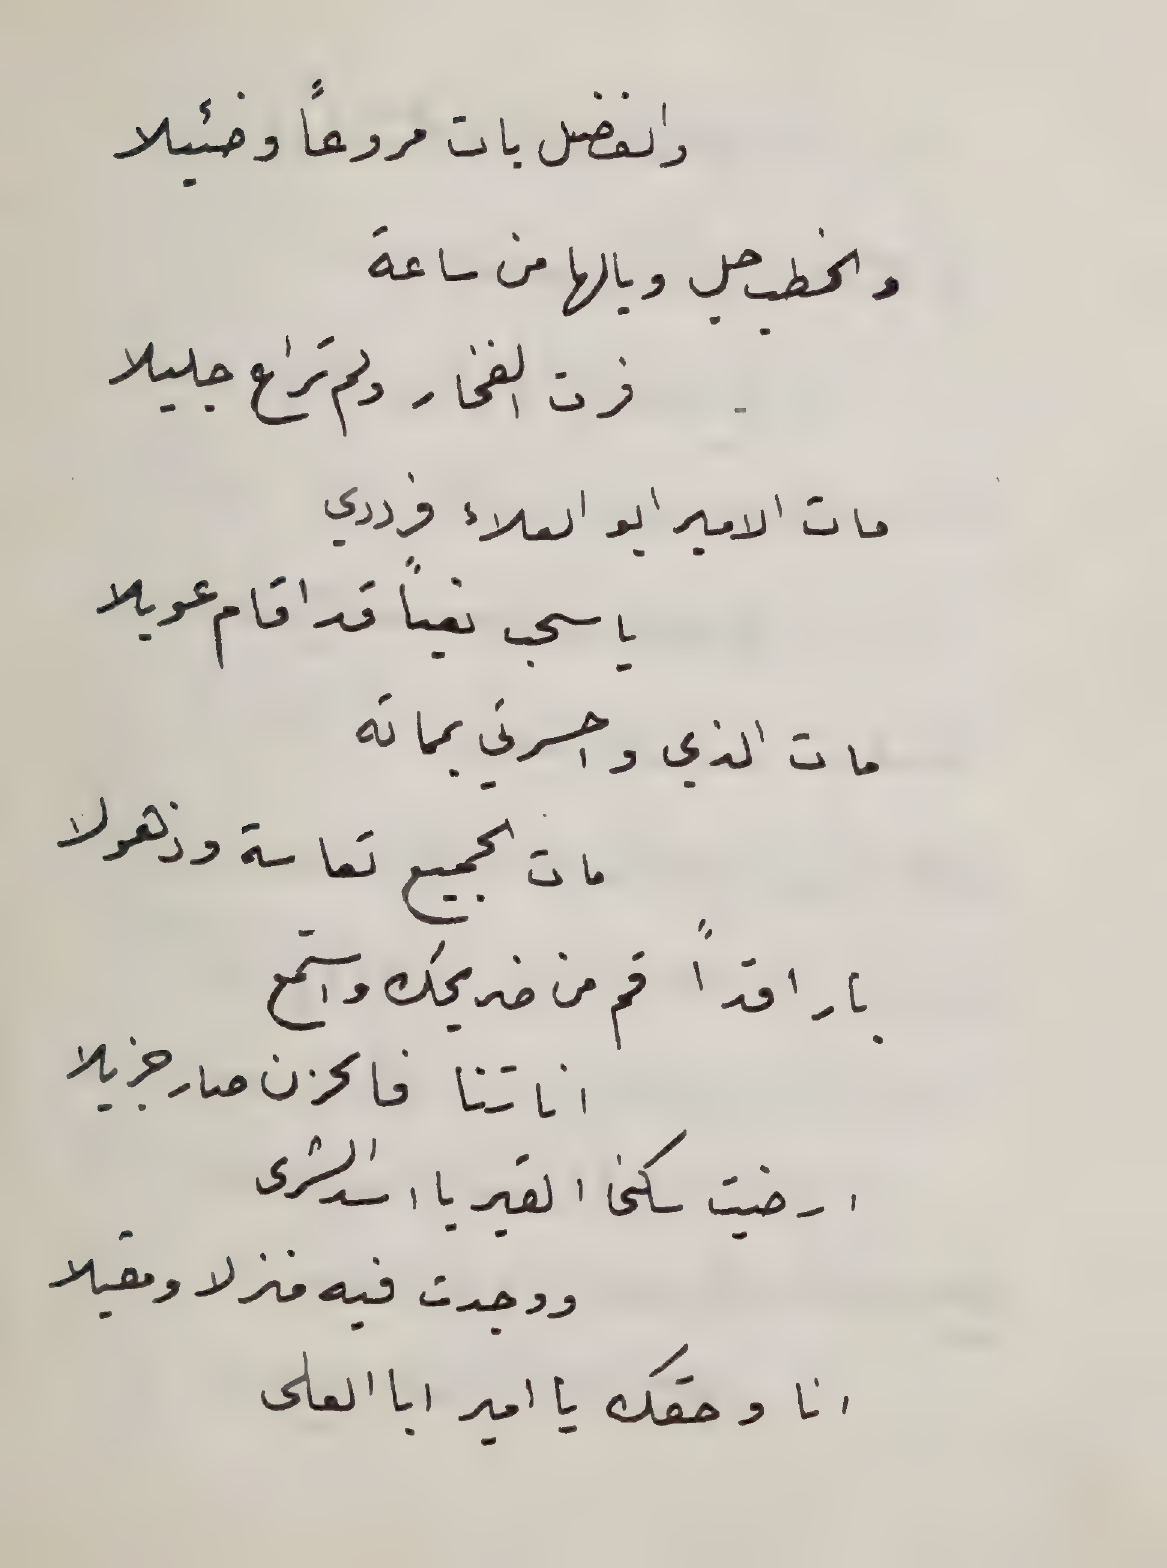 والفضل بات مروعاً وضئيلا
والخطب جل ويالها من ساعة
فرت الفخار ولم تراع جليلا
مات الامير ابو العلاء فرددي
يا سحب نعياً قد اقام عويلا
مات الذي واحسرتي بمماته
مات الجميع تعاسة وذهولا
يا راقداً قم من ضريحك واستمع
اناتنا فالحزن صار جزيلا
ارضيت سكنى القبر يا اسد الشرى
ووجدت فيه منزلا ومقيلا
انا وحقك يا امير ابا العلى